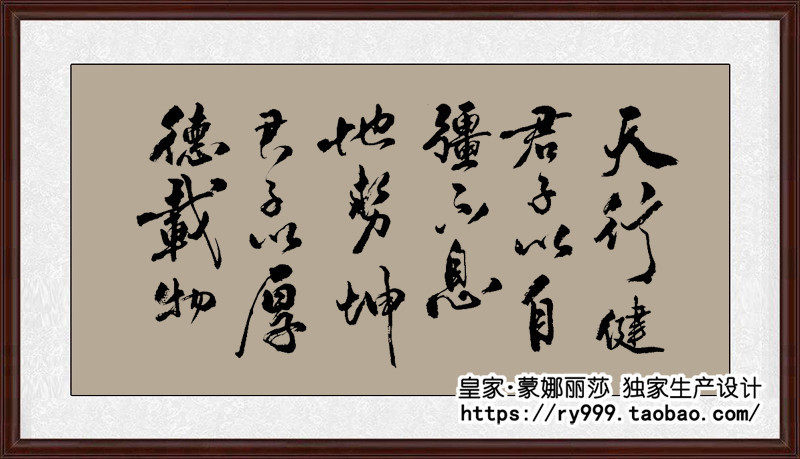 天行健
君子以自
疆不息
地勢坤
君子以厚
德載物
皇家·蒙娜丽莎 独家生产设计
https://ry999.taobao.com/